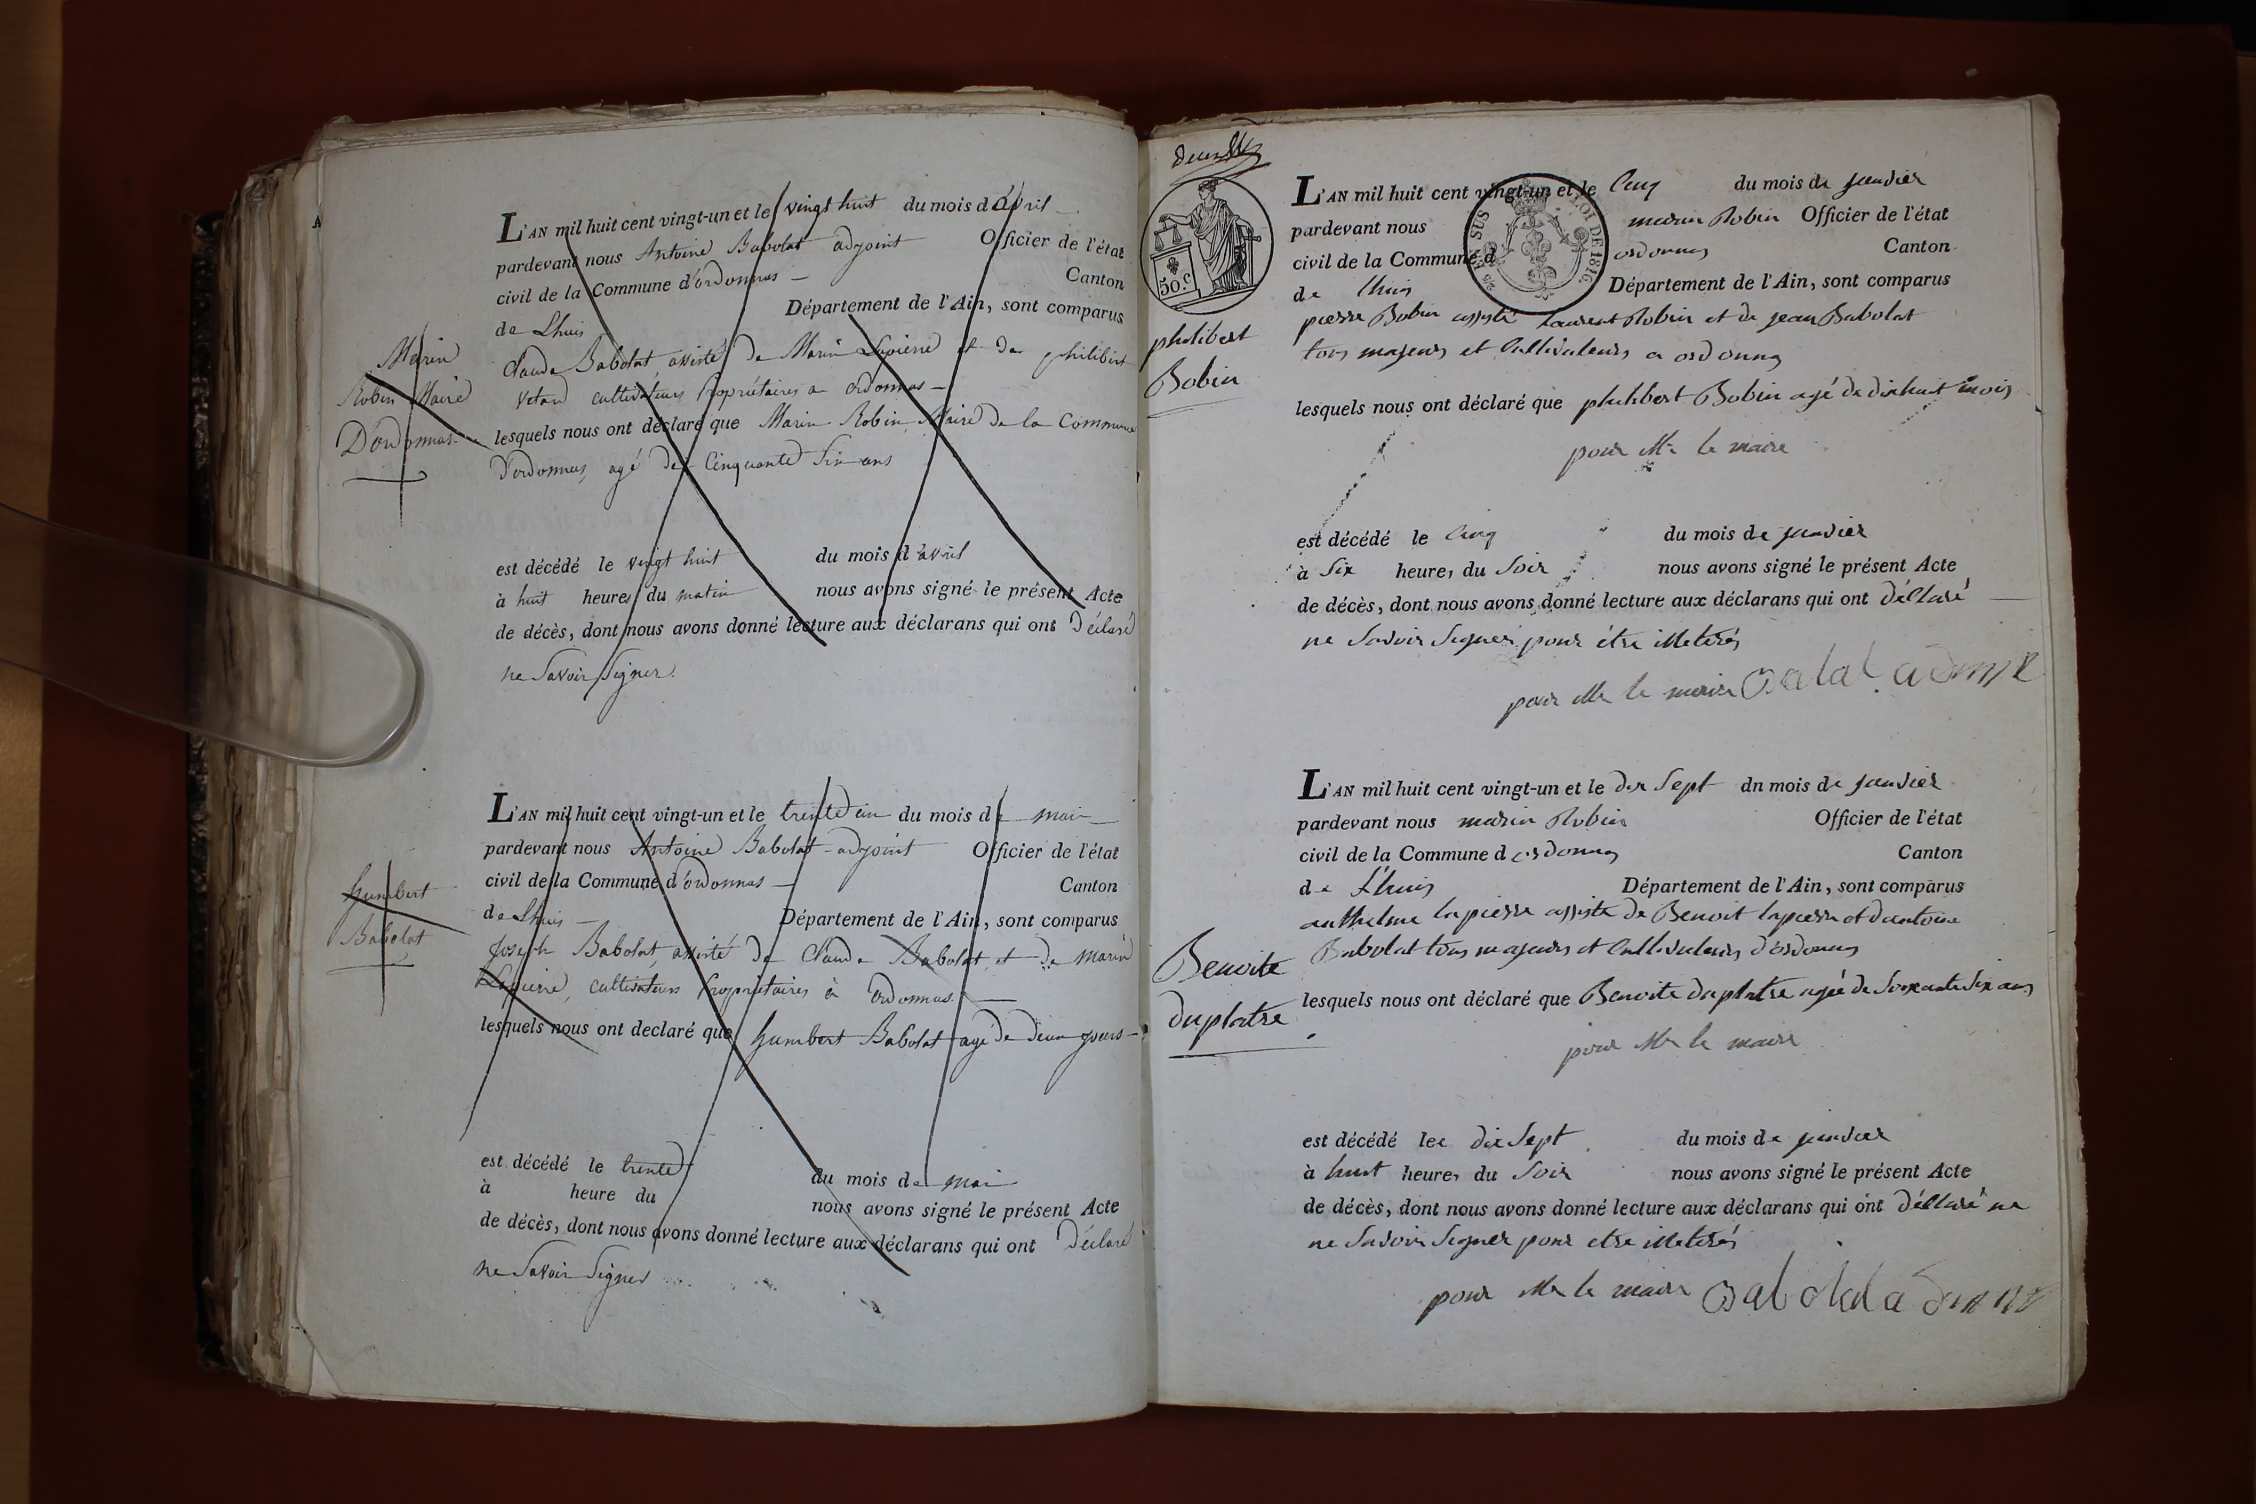 A
L'AN mil huit cent vingt-un et le vingt huit du mois d'avril
pardevant nous Antoine Babolat adjoint Officier de l'état
civil de la Commune d'ordonnas Canton
de Lhuis Département de l'Ain, sont comparus
Claude Babolat, assisté de Marin Lapierre et de philibert
cultivateurs propriétaires a ordonnas
Marin
Robin Maire
D'ordonnas
lesquels nous ont déclaré que Marin Robin, Maire de la Commune
d'ordonnas, agé de Cinquante Six ans
est décédé le vingt huit du mois d'avril
à huit heures du matin nous avons signé le présent Acte
de décès, dont nous avons donné lecture aux déclarans qui ont Déclaré
ne Savoir Signer.
L'AN mil huit cent vingt-un et le trente un du mois de mai
pardevant nous Antoine Babolat adjoint Officier de l'état
civil de la Commune d'ordonnas Canton
de Lhuis Département de l'Ain, sont comparus
humbert
Babolat
Joseph Babolat, assisté de Claude Babolat et de marin
Lapierre, cultivateurs propriétaires à ordonnas.
lesquels nous ont declaré que humbert Babolat agé de deux jours
est décédé le trente du mois de mai
à heure du nous avons signé le présent Acte
de décès, dont nous avons donné lecture aux déclarans qui ont Déclaré
ne Savoir Signer
deux
50.c
EN SUS LOI DE 1816
philibert
Bobin
L'AN mil huit cent vingt-un et le Cinq du mois de janvier
pardevant nous marin Robin Officier de l'état
civil de la Commune d ordonnas Canton
de lhuis Département de l'Ain, sont comparus
pierre Bobin assisté laurent Robin et de jean Babolat
tous majeurs et Cultivateurs a ordonnas
lesquels nous ont déclaré que philibert Bobin agé de dix huit mois
pour Mr le maire
est décédé le Cinq du mois de janvier
à Six heures du Soir nous avons signé le présent Acte
de décès, dont nous avons donné lecture aux déclarans qui ont déClaré
ne Savoir Signer pour être illeterés
pour Mr le maire
L'AN mil huit cent vingt-un et le dix Sept dn mois de janvier
pardevant nous marin Robin Officier de l'état
civil de la Commune d ordonnas Canton
de Lhuis Département de l'Ain, sont comparus
anthelme lapierre assisté de Benoit lapierre et d'antoine
Babolat tous majeurs et Cultivateurs d'ordonnas
Benoite
duplatre
lesquels nous ont déclaré que Benoite duplatre agée de Soixante Six ans
pour Mr le maire
est décédé lee dix Sept du mois de janvier
à huit heures du Soir nous avons signé le présent Acte
de décès, dont nous avons donné lecture aux déclarans qui ont déClaré ne
ne Savoir Signer pour etre illeterés
pour Mr le maire